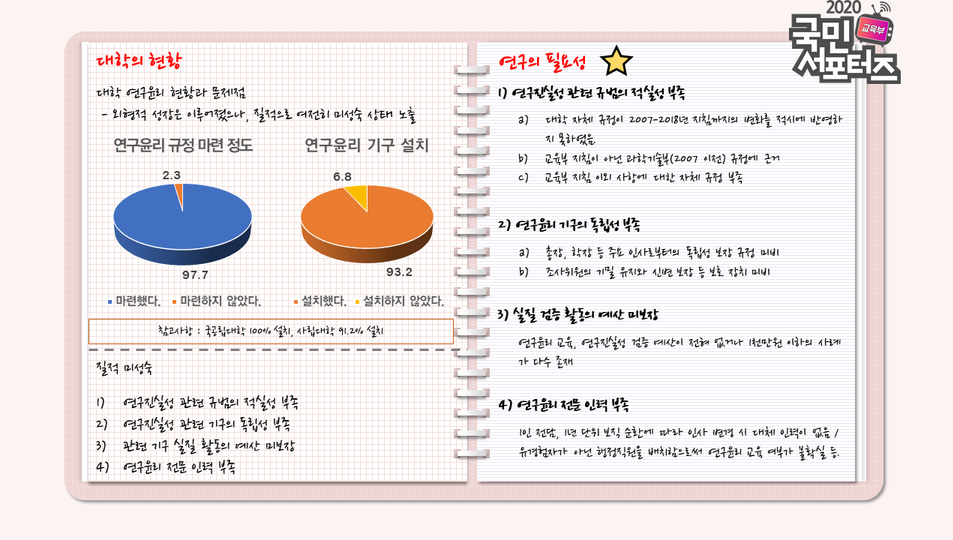 2020
교육부
국민
서포터즈
대학의 현황
대학 연구윤리 현황과 문제점
- 외형적 성장은 이루어졌으나, 질적으로 여전히 미성숙 상태 노출
연구윤리 규정 마련 정도
2.3
97.7
마련했다. 마련하지 않았다.
연구윤리 기구 설치
6.8
93.2
설치했다. 설치하지 않았다.
참고사항 : 국공립대학 100% 설치, 사립대학 91.2% 설치
질적 미성숙
1) 연구진실성 관련 규범의 적실성 부족
2) 연구진실성 관련 기구의 독립성 부족
3) 관련 기구 실질 활동의 예산 미보장
4) 연구윤리 전문 인력 부족
연구의 필요성
1) 연구진실성 관련 규범의 적실성 부족
a) 대학 자체 규정이 2007-2018년 지침까지의 변화를 적시에 반영하
지 못하였음
b) 교육부 지침이 아닌 과학기술부(2007 이전) 규정에 근거
c) 교육부 지침 이외 사항에 대한 자체 규정 부족
2) 연구윤리 기구의 독립성 부족
a) 총장, 학장 등 주요 인사로부터의 독립성 보장 규정 미비
b) 조사위원의 기밀 유지와 신변 보장 등 보호 장치 미비
3) 실질 검증 활동의 예산 미보장
연구윤리 교육, 연구진실성 검증 예산이 전혀 없거나 1천만원 이하의 사례
가 다수 존재
4) 연구윤리 전문 인력 부족
1인 전담, 1년 단위 보직 순환에 따라 인사 변경 시 대체 인력이 없음 /
유경험자가 아닌 행정직원을 배치함으로써 연구윤리 교육 여부가 불확실 등.